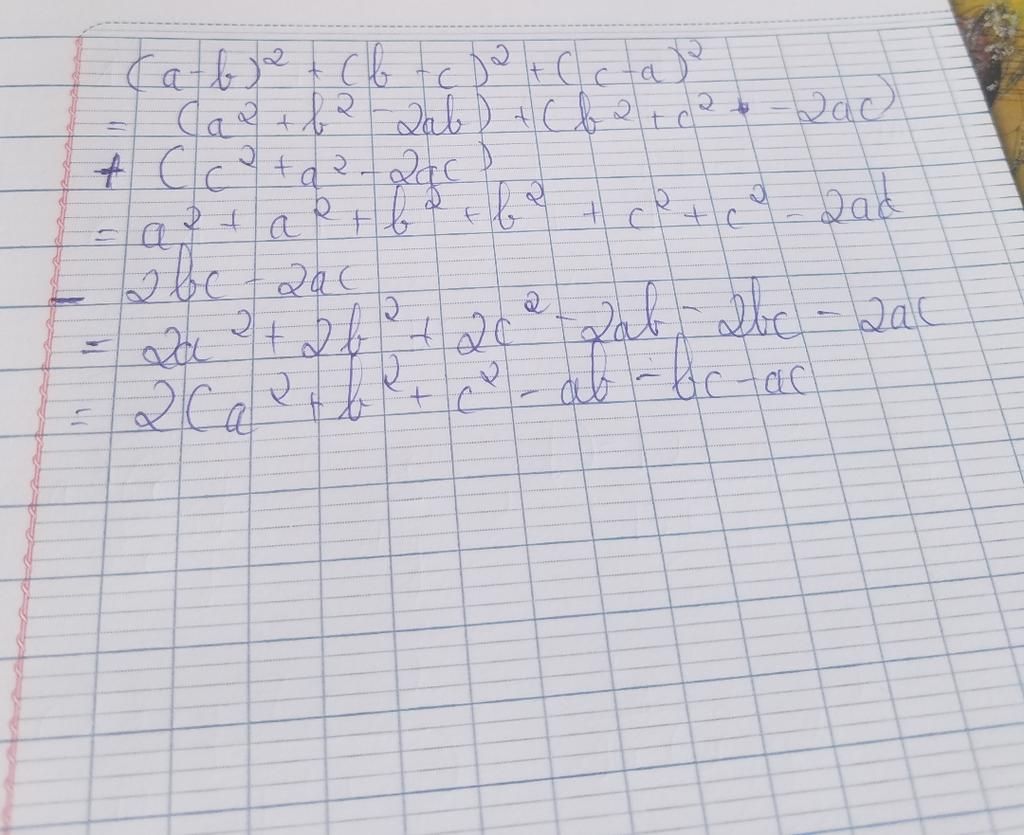 (a-b)² + (b-c)² + (c-a)²
= (a² + b² - 2ab) + (b² + c² - 2ac)
+ (c² + a² - 2ac)
= a² + a² + b² + b² + c² + c² - 2ab
- 2bc - 2ac
= 2a² + 2b² + 2c² - 2ab - 2bc - 2ac
= 2(a² + b² + c² - ab - bc - ac